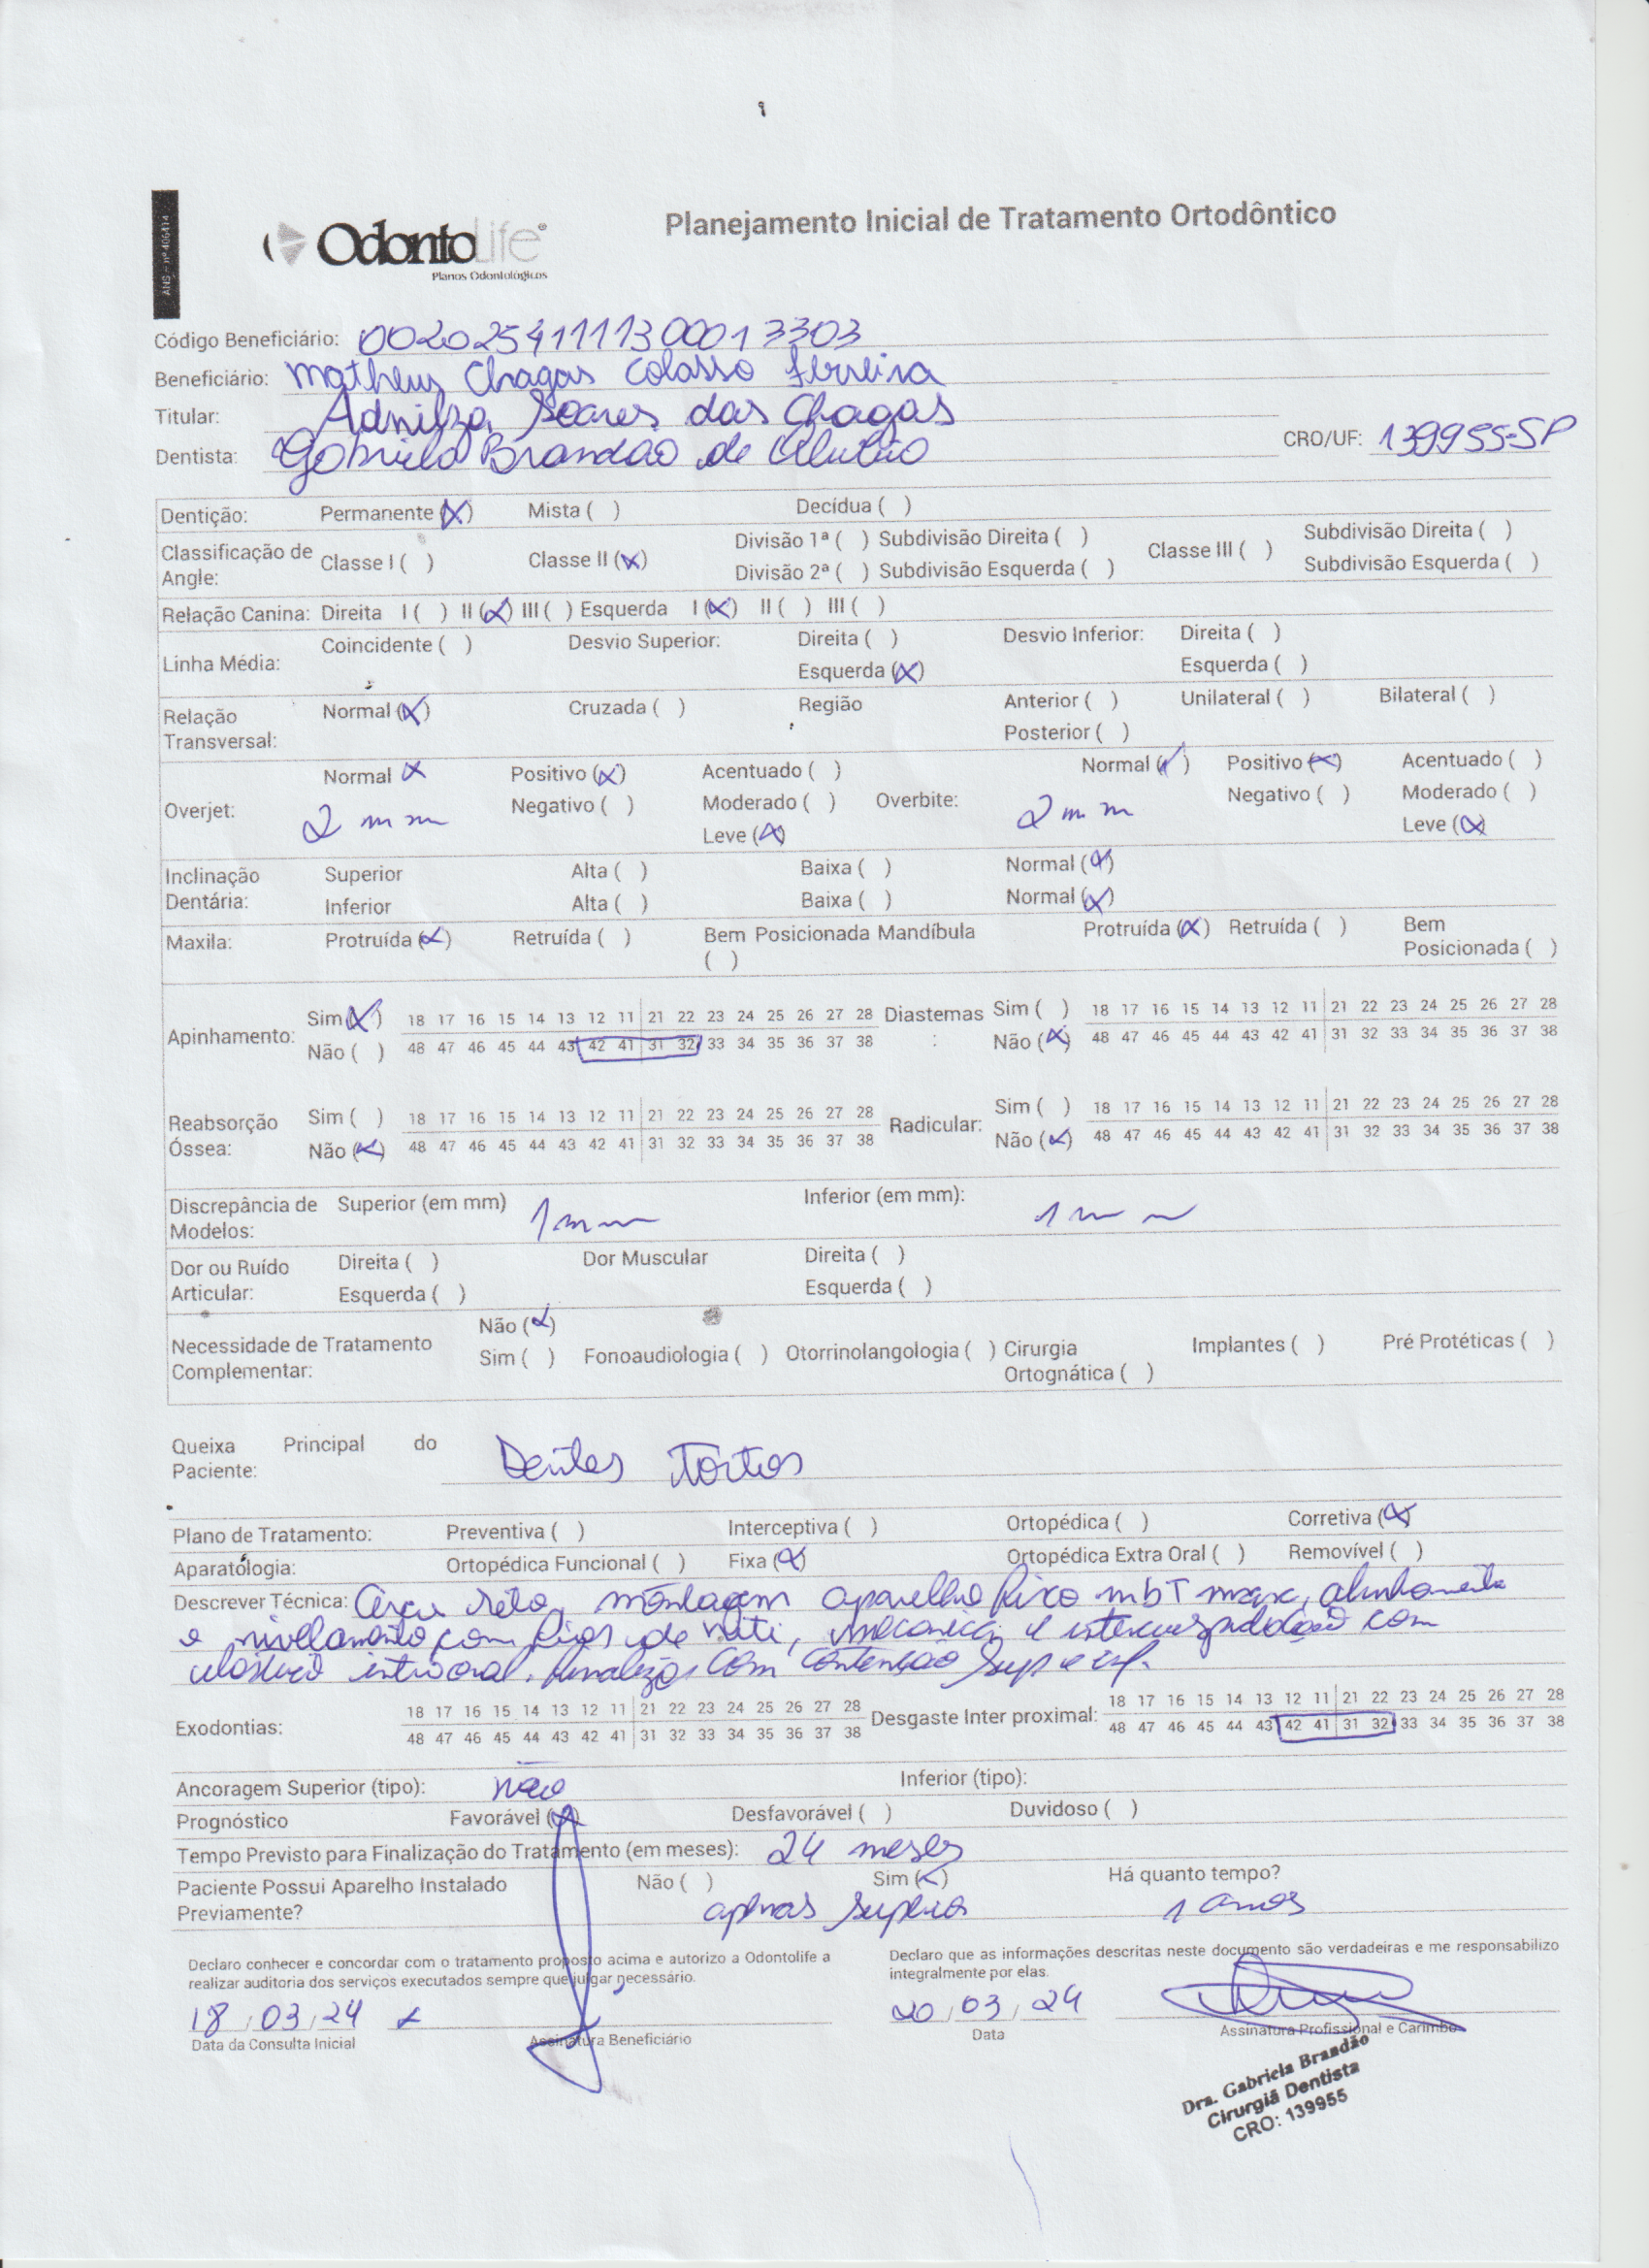 ANS - nº 406414
OdontoLife®
Planos Odontológicos
Planejamento Inicial de Tratamento Ortodôntico
Código Beneficiário: 00202541111300013303
Beneficiário: Matheus Chagas Colasso Ferreira
Titular: Adnilza Soares das Chagas
Dentista: Gabriela Brandão de CRO/UF: 139955-SP
Dentição: Permanente (X) Mista ( ) Decídua ( )
Classificação de Angle: Classe I ( ) Classe II (X) Divisão 1ª ( ) Subdivisão Direita ( ) Classe III ( ) Subdivisão Direita ( )
Divisão 2ª ( ) Subdivisão Esquerda ( ) Subdivisão Esquerda ( )
Relação Canina: Direita I ( ) II (X) III ( ) Esquerda I (X) II ( ) III ( )
Linha Média: Coincidente ( ) Desvio Superior: Direita ( ) Desvio Inferior: Direita ( )
Esquerda (X) Esquerda ( )
Relação Transversal: Normal (X) Cruzada ( ) Região Anterior ( ) Unilateral ( ) Bilateral ( )
Posterior ( )
Normal X Positivo (X) Acentuado ( ) Normal (X) Positivo (X) Acentuado ( )
Overjet: 2 mm Negativo ( ) Moderado ( ) Overbite: 2 mm Negativo ( ) Moderado ( )
Leve (X) Leve (X)
Inclinação Dentária: Superior Alta ( ) Baixa ( ) Normal (X)
Inferior Alta ( ) Baixa ( ) Normal (X)
Maxila: Protruída (X) Retruída ( ) Bem Posicionada ( ) Mandíbula Protruída (X) Retruída ( ) Bem Posicionada ( )
Apinhamento: Sim (X) 18 17 16 15 14 13 12 11 21 22 23 24 25 26 27 28 Diastemas : Sim ( ) 18 17 16 15 14 13 12 11 21 22 23 24 25 26 27 28
Não ( ) 48 47 46 45 44 43 42 41 31 32 33 34 35 36 37 38 Não (X) 48 47 46 45 44 43 42 41 31 32 33 34 35 36 37 38
Reabsorção Óssea: Sim ( ) 18 17 16 15 14 13 12 11 21 22 23 24 25 26 27 28 Radicular: Sim ( ) 18 17 16 15 14 13 12 11 21 22 23 24 25 26 27 28
Não (X) 48 47 46 45 44 43 42 41 31 32 33 34 35 36 37 38 Não (X) 48 47 46 45 44 43 42 41 31 32 33 34 35 36 37 38
Discrepância de Modelos: Superior (em mm) 1mm Inferior (em mm): 1mm
Dor ou Ruído Articular: Direita ( ) Dor Muscular Direita ( )
Esquerda ( ) Esquerda ( )
Necessidade de Tratamento Complementar: Não (X)
Sim ( ) Fonoaudiologia ( ) Otorrinolangologia ( ) Cirurgia Ortognática ( ) Implantes ( ) Pré Protéticas ( )
Queixa Principal do Paciente: Dentes Tortos
Plano de Tratamento: Preventiva ( ) Interceptiva ( ) Ortopédica ( ) Corretiva (X)
Aparatologia: Ortopédica Funcional ( ) Fixa (X) Ortopédica Extra Oral ( ) Removível ( )
Descrever Técnica: Arco reto, montagem aparelho fixo mbT, alinhamento
e nivelamento com fios de niti, mecanica e intercuspidação com
elastico intraoral. finalizar com contenção sup e inf.
Exodontias: 18 17 16 15 14 13 12 11 21 22 23 24 25 26 27 28 Desgaste Inter proximal: 18 17 16 15 14 13 12 11 21 22 23 24 25 26 27 28
48 47 46 45 44 43 42 41 31 32 33 34 35 36 37 38 48 47 46 45 44 43 42 41 31 32 33 34 35 36 37 38
Ancoragem Superior (tipo): não Inferior (tipo):
Prognóstico Favorável (X) Desfavorável ( ) Duvidoso ( )
Tempo Previsto para Finalização do Tratamento (em meses): 24 meses
Paciente Possui Aparelho Instalado Previamente? Não ( ) Sim (X) Há quanto tempo?
apenas superior 1 anos
Declaro conhecer e concordar com o tratamento proposto acima e autorizo a Odontolife a
realizar auditoria dos serviços executados sempre que julgar necessário.
Declaro que as informações descritas neste documento são verdadeiras e me responsabilizo
integralmente por elas.
18/03/24 x
Data da Consulta Inicial Assinatura Beneficiário
20/03/24
Data Assinatura Profissional e Carimbo
Dra. Gabriela Brandão
Cirurgiã Dentista
CRO: 139955